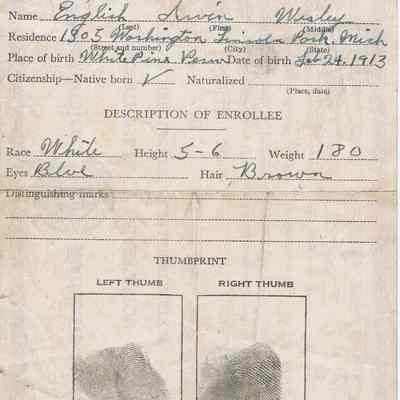 Name English Irvin Wesley
(Last) (First) (Middle)
Residence 1505 Washington Lincoln Park, Mich
(Street and number) (City) (State)
Place of birth White Pine Penn Date of birth Feb 24, 1913
Citizenship—Native born ✓ Naturalized
(Place, date)
DESCRIPTION OF ENROLLEE
Race White Height 5-6 Weight 180
Eyes Blue Hair Brown
Distinguishing marks
THUMBPRINT
LEFT THUMB RIGHT THUMB